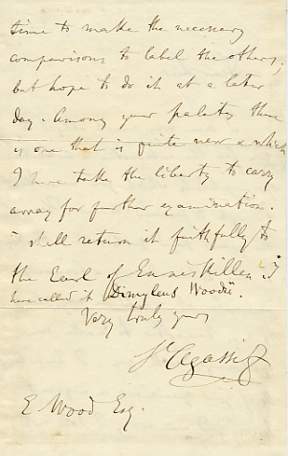 time to make the necessary
comparisons to label the others;
but hope to do it at a later
day. Among your palates there
is one that is quite new & which
I have take the liberty to carry
away for further examination.
I shall return it faithfully to
the Earl of Enniskillen. I
have called it Dimyleus Woodii.
Very truly yours
Ls Agassiz
E Wood Esq.